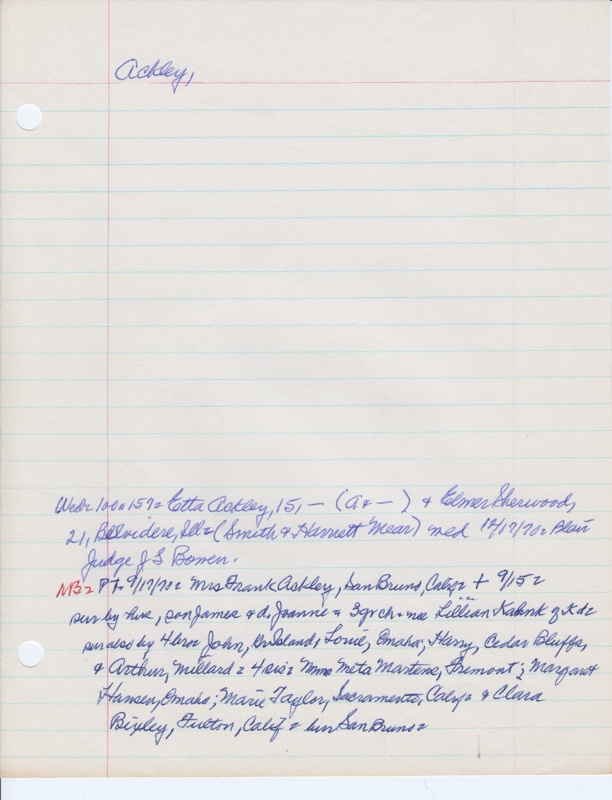 Ackley,
Wed= 100 0 157= Etta Ackley, 15, — (A + —) & Elmer Sherwood,
21, Belvidere, Ill= (Smith & Harriett Mear) med 12/17/70= Blair
Judge J S Bowen.
NB= Pt 9/17/70= Mrs Frank Ackley, San Bruno, Calif= + 9/15=
surv by hus, son James & d. Joanne & 3 gr ch= nee Lillian Kahnk of Kd=
sur also by 4 bro= John, Gr Island; Louie, Omaha; Harry, Cedar Bluffs,
& Arthur, Millard= 4 sis= Mmes Meta Martens, Fremont; Margaret
Hansen, Omaha; Marie Taylor, Sacramento, Calif= & Clara
Bixley, Fulton, Calif= bur San Bruno=